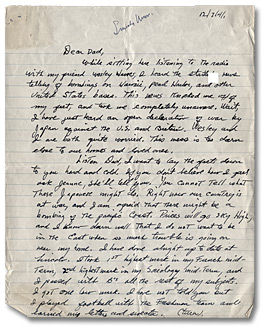 12/7/41
Dear Dad,
While sitting here listening to the radio
with my friend Wesley I heard the
talking of bombings on Hawaii, Pearl Harbor, and other
United States bases. This news
my feet and took me completely unaware. Wait
I have just heard an open declaration of war by
Japan against the U.S. and Britain. Wesley and
I are both quite worried. This news is too darn
close to our homes and loved ones.
Listen Dad, I want to lay the facts down
to you hard and cold. If you don't believe how I feel
ask Jeanne, She'll tell you. You cannot tell what
these Japanese might do. Right now our country is
at war, and I am afraid that there might be a
bombing of the Pacific Coast. Prices will go Sky High,
and I know darn well That I do not want to be
in the East when so much trouble is going on
near my home. I have done alright up to date at
Lincoln. I took 1st highest mark in my French mid-
Term, 2nd highest mark in my Sociology mid-Term, and
I passed with B's all the rest of my subjects.
I got one low mark. I have not told you but
I played football with the Freshman team and
earned my letter and